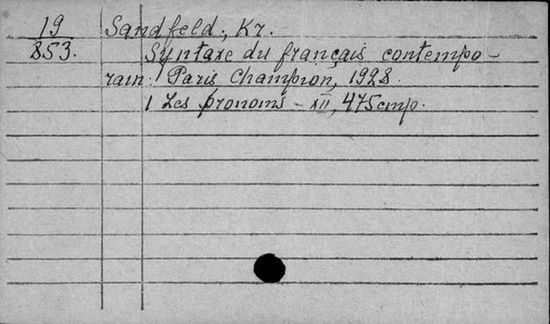 19 Sandfeld, Kr.
853. Syntaxe du français contempo-
rain. Paris Champion, 1928.
1 Les pronoms - XII, 475 cmp.